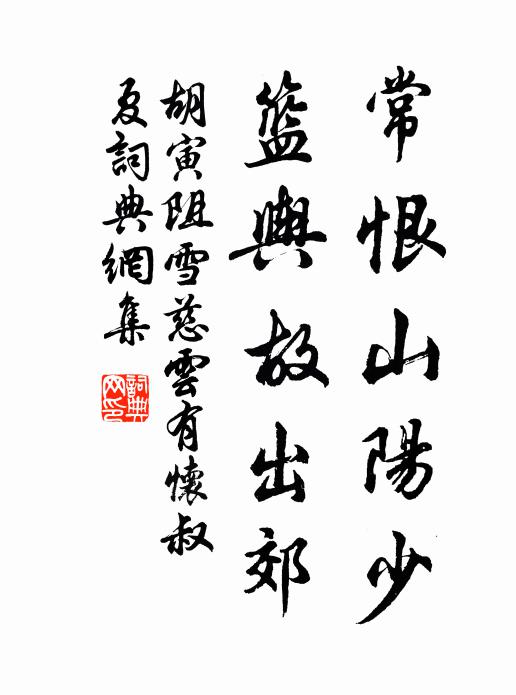 常恨山陽少
籃輿故出郊
胡寅阻雪慈雲有懷叔
夏詞典網集
詞典網印